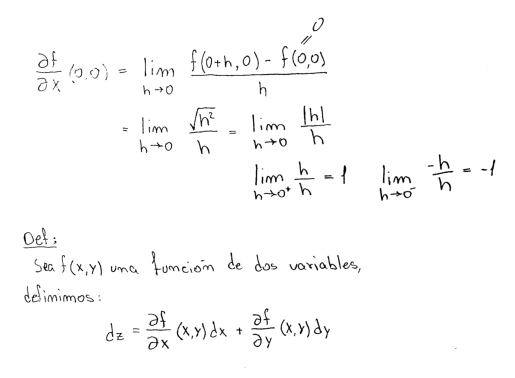 ∂f/∂x (0,0) = lim h→0 (f(0+h,0) - f(0,0))/h
0
= lim h→0 √h²/h = lim h→0 |h|/h
lim h→0⁺ h/h = 1 lim h→0⁻ -h/h = -1
Def:
Sea f(x,y) una función de dos variables,
definimos:
dz = ∂f/∂x (x,y) dx + ∂f/∂y (x,y) dy